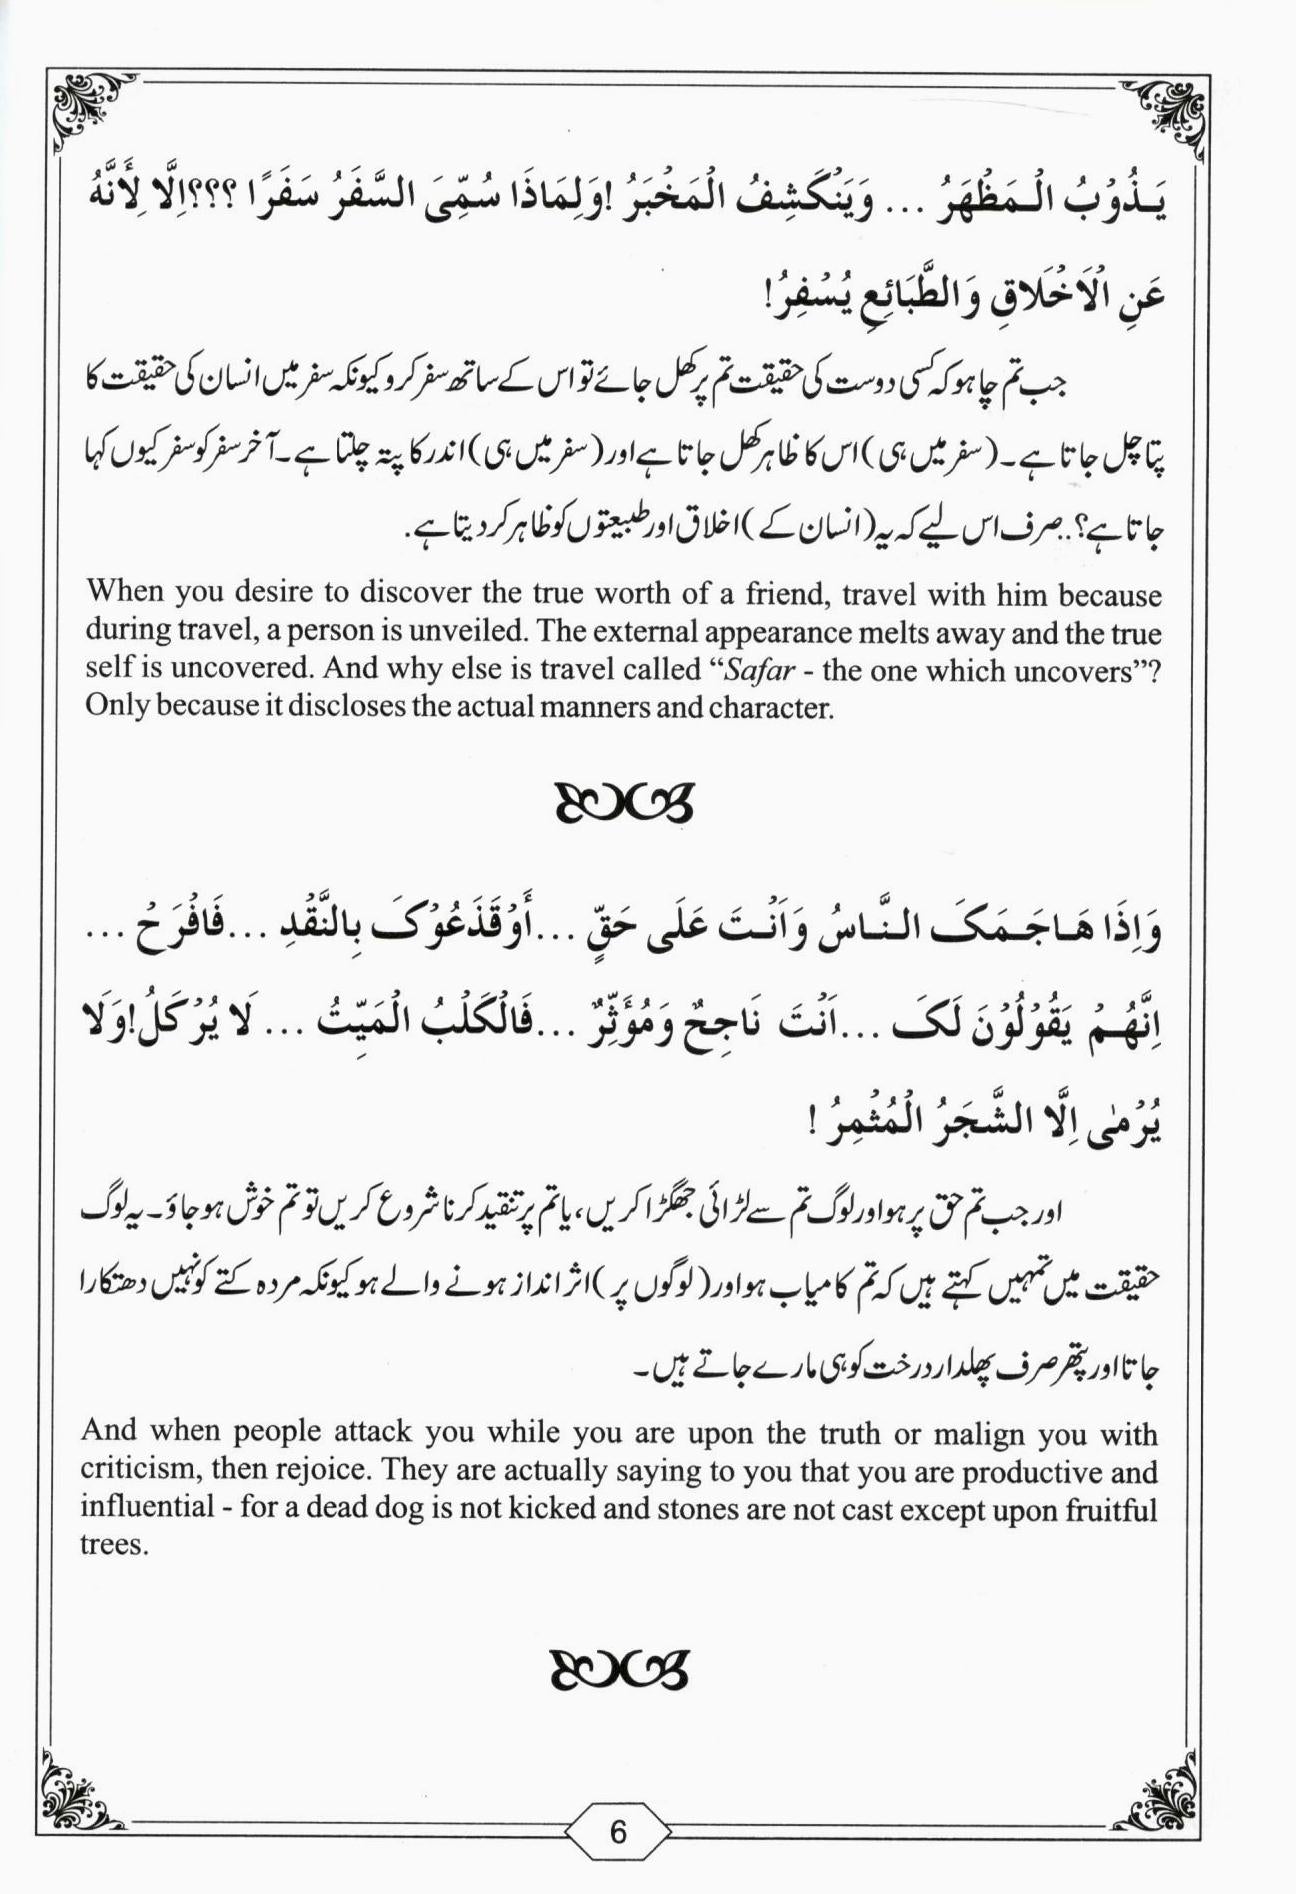 يَـذُوْبُ الْـمَـظْهَرُ ... وَيَنْكَشِفُ الْمَخْبَرُ !وَلِمَاذَا سُمِّىَ السَّفَرُ سَفَرًا ؟؟؟اِلَّا لِأَنَّهُ
عَنِ الْاَخْلَاقِ وَالطَّبَائِعِ يُسْفِرُ!
جب تم چاہو کہ کسی دوست کی حقیقت تم پر کھل جائے تو اس کے ساتھ سفر کرو کیونکہ سفر میں انسان کی حقیقت کا
پتا چل جاتا ہے۔ (سفر میں ہی) اس کا ظاہر کھل جاتا ہے اور (سفر میں ہی) اندر کا پتہ چلتا ہے۔ آخر سفر کو سفر کیوں کہا
جاتا ہے؟.. صرف اس لیے کہ یہ (انسان کے) اخلاق اور طبیعتوں کو ظاہر کر دیتا ہے.
When you desire to discover the true worth of a friend, travel with him because
during travel, a person is unveiled. The external appearance melts away and the true
self is uncovered. And why else is travel called “Safar - the one which uncovers”?
Only because it discloses the actual manners and character.
وَاِذَا هَـاجَـمَـكَ الـنَّـاسُ وَاَنْـتَ عَلَى حَقٍّ ...أَوْقَذَعُوْكَ بِالنَّقْدِ ...فَافْرَحْ ...
اِنَّهُـمْ يَقُوْلُوْنَ لَكَ ...اَنْتَ نَاجِحٌ وَمُؤَثِّرٌ ...فَالْكَلْبُ الْمَيِّتُ ... لَا يُرْكَلُ!وَلَا
يُرْمٰى اِلَّا الشَّجَرُ الْمُثْمِرُ !
اور جب تم حق پر ہو اور لوگ تم سے لڑائی جھگڑا کریں، یا تم پر تنقید کرنا شروع کریں تو تم خوش ہو جاؤ۔ یہ لوگ
حقیقت میں تمہیں کہتے ہیں کہ تم کامیاب ہو اور (لوگوں پر) اثر انداز ہونے والے ہو کیونکہ مردہ کتے کو نہیں دھتکارا
جاتا اور پتھر صرف پھلدار درخت کو ہی مارے جاتے ہیں۔
And when people attack you while you are upon the truth or malign you with
criticism, then rejoice. They are actually saying to you that you are productive and
influential - for a dead dog is not kicked and stones are not cast except upon fruitful
trees.
6